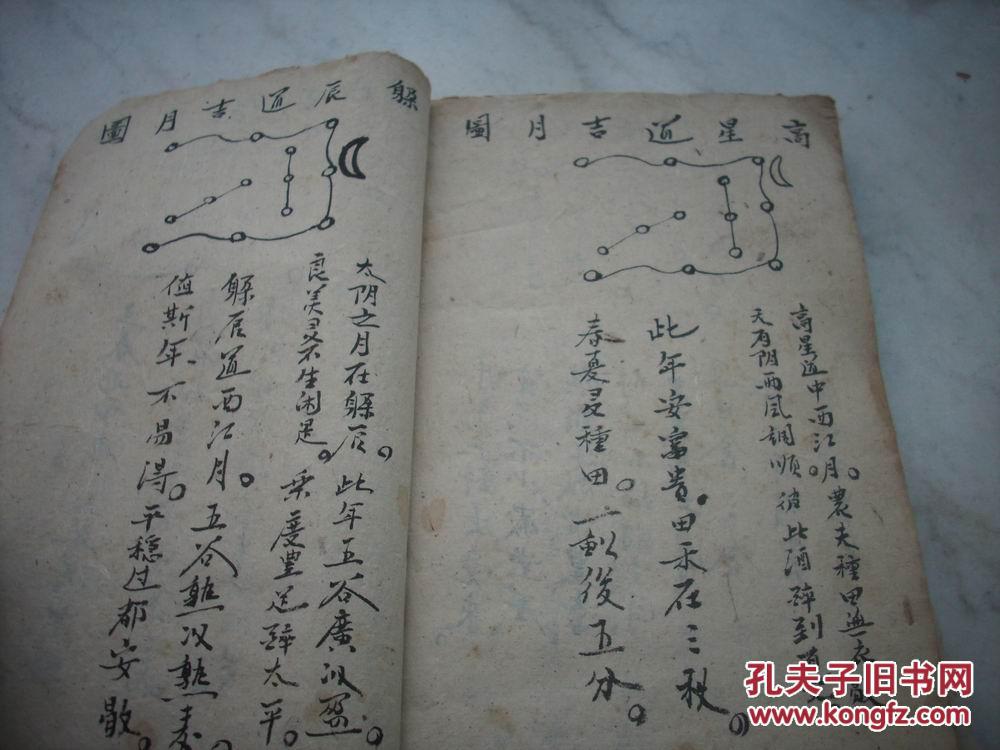 高星道吉月圖
高星道中西江月。農夫種田無
天有阴雨風調順。彼此酒醉到
此年安富貴。田禾在三秋。
春夏旻種田。一亩後五分。
躲辰道吉月圖
太阴之月在躲辰。此年五谷廣收盈。
良美旻不生闲是。乘慶豊足醉太平。
躲辰道西江月。五谷熟收熟
值斯年不易得。平穏过都安散。
孔夫子旧书网
www.kongfz.com